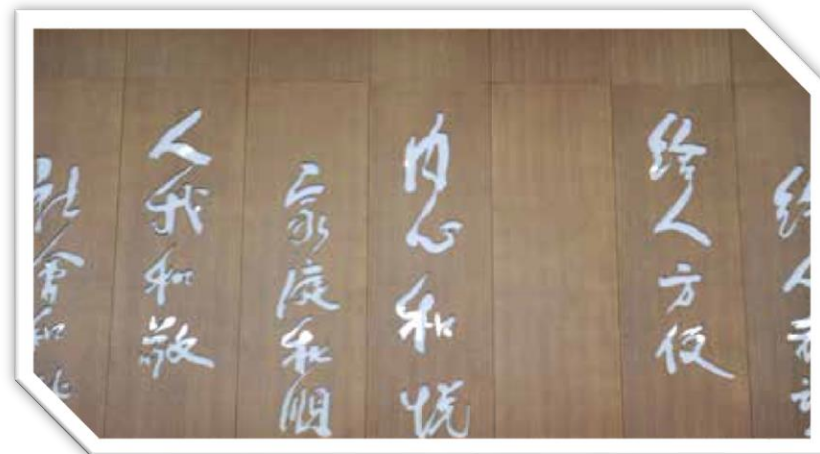 給人
給人方便
內心和悅
家庭和順
人我和敬
社會和